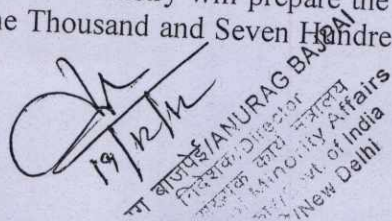 will prepare the
Thousand and Seven Hundre
19/12/12
बाजपेई/ANURAG BAJPAI
निदेशक/Director
कार्य मंत्रालय
Minority Affairs
Govt. of India
/New Delhi